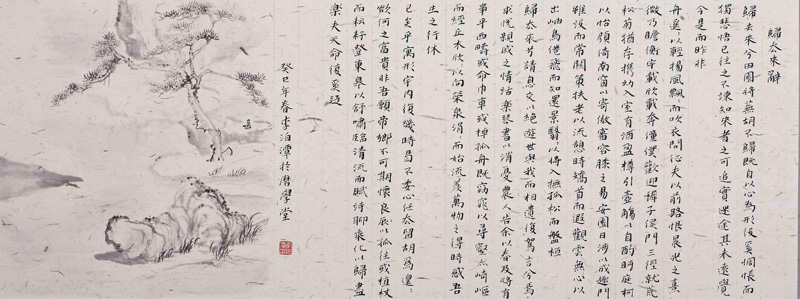 歸去來辭
歸去來兮田園將蕪胡不歸既自以心為形役奚惆悵而
獨悲悟已往之不諫知來者之可追實迷途其未遠覺
今是而昨非
舟遙:以輕揚風飄:而吹衣問征夫以前路恨晨光之熹
微乃瞻衡宇載欣載奔僮僕歡迎稚子候門三徑就荒
松菊猶存攜幼入室有酒盈樽引壺觴以自酌眄庭柯
以怡顏倚南窗以寄傲審容膝之易安園日涉以成趣門
雖設而常關策扶老以流憩時矯首而遐觀雲無心以
出岫鳥倦飛而知還景翳:以將入撫孤松而盤桓
歸去來兮請息交以絕遊世與我而相遺復駕言兮焉
求悅親戚之情話樂琴書以消憂農人告余以春及將有
事乎西疇或命巾車或棹孤舟既窈窕以尋壑亦崎嶇
而經丘木欣:以向榮泉涓:而始流羨萬物之得時感吾
生之行休
已矣乎寓形宇內復幾時曷不委心任去留胡為遑:
欲何之富貴非吾願帝鄉不可期懷良辰以孤往或植杖
而耘耔登東皋以舒嘯臨清流而賦詩聊乘化以歸盡
樂夫天命復奚疑
癸巳年春李泊潭於磨學堂